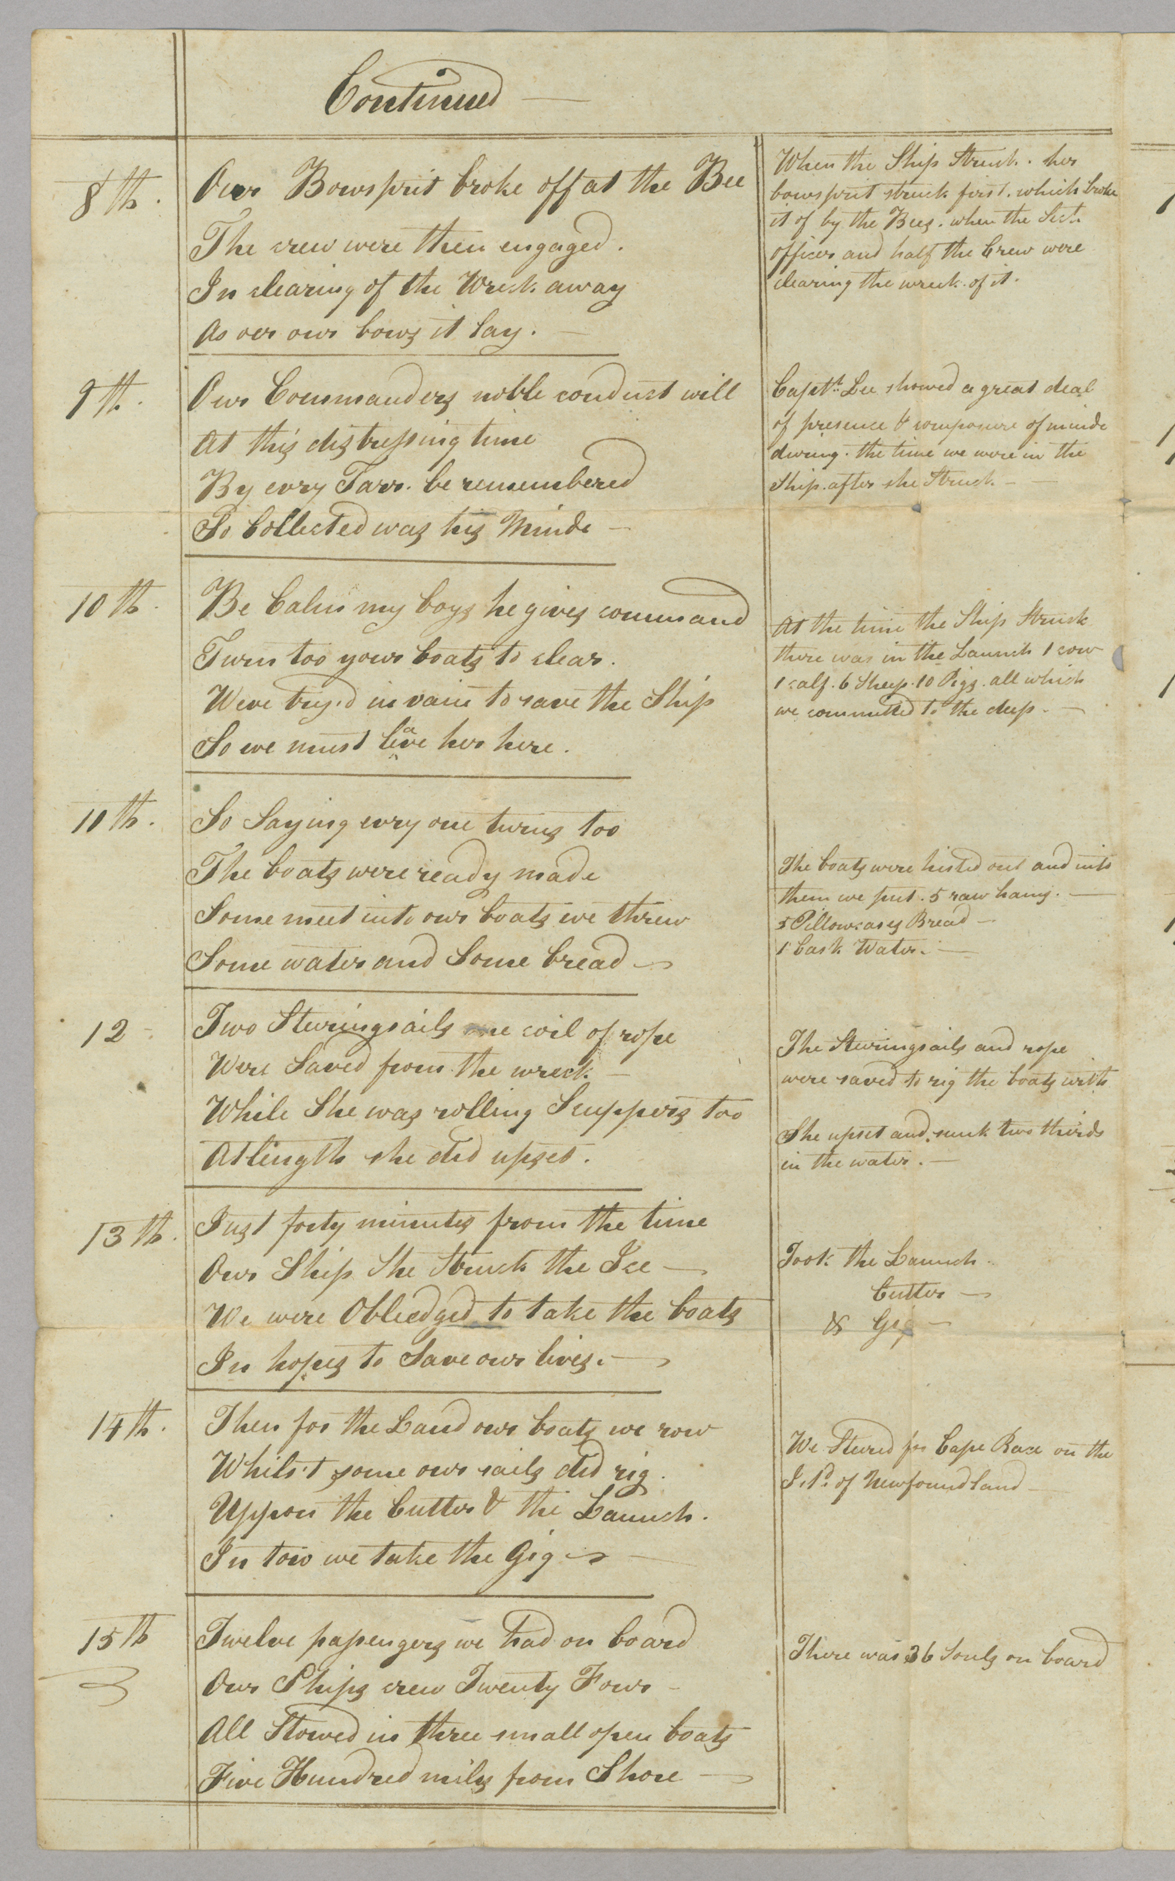 Continued
8th.
Our Bowsprit broke off at the Bee
The crew were then engaged.
In clearing of the Wreck away
As oer our bows it lay.
When the Ship Struck. her
bowsprit struck first. which broke
it of by the Bees. when the Sect.
officer and half the Crew were
clearing the wreck of it.
9th.
Our Commanders noble conduct will
At this distressing time
By evry Tarr. be remembered
So Collected was his Minde
Captn. Lee showed a great deal
of presence & composure of minde
during. the time we were in the
Ship. after she Struck
10th.
Be Calm my boys he gives command
Turn too your boats to clear.
Weve try,d in vain to save the Ship
So we must leave her here.
At the time the Ship Struck
there was in the Launch 1 cow
1 calf. 6 Sheep. 10 Pigs. all which
we committed to the deep.
11th.
So Saying evry one turns too
The boats were ready made
Some meet into our boats we threw
Some water and Some bread
The boats were histed out and into
them we put. 5 raw hams.
5 Pillowcases Bread
1 Cask Water.
12
Two Steringsails one coil of rope
Were Saved from the wreck
While She was rolling Scuppers too
At length she did upset.
The Steringsails and rope
were saved to rig the boats with
She upset and sunk two thirds
in the water.
13th.
Just forty minutes from the time
Our Ship She Struck the Ice
We were Obliedged to take the boats
In hopes to Save our lives.
Took the Launch
Cutter
& Gig
14th.
Then for the Land our boats we row
Whils't some our sails did rig.
Uppon the Cutter & the Launch.
In tow we take the Gig
We Stered for Cape Race on the
of Newfoundland
15th
Twelve passengers we had on board
Our Ships crew Twenty Four
All Stowed in three small open boats
Five Hundred miles from Shore
There was 36 Souls on board